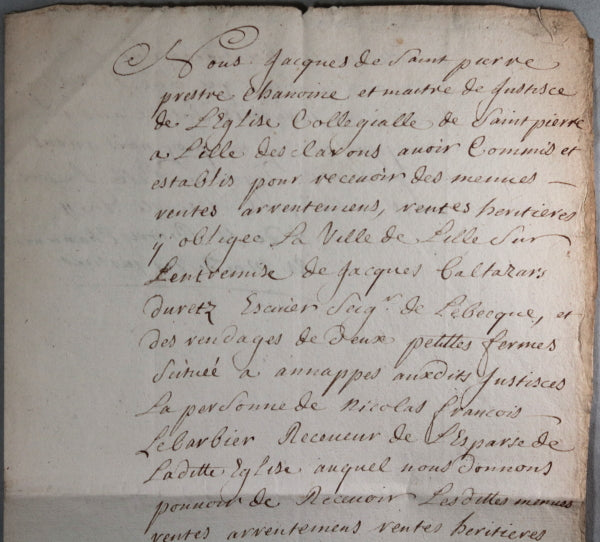 Nous Jacques de Saint pierre
prestre Chanoine et maitre de Justisce
de L'Eglise Collegialle de Saint pierre
a Lille desclarons auoir Commis et
establis pour receuoir des menues
rentes arrentemens, rentes heritieres
y obligee La Ville de Lille Sur
Lentremise de Jacques Baltazars
duretz Escuier Seigr. de Lebecque, et
des rendages de deux petittes fermes
Scituée a annappes auxdits Justisces
La personne de Nicolas François
Lebarbier Receueur de L'Esparse de
Laditte Eglise auquel nous donnons
pouuoir de Receuoir Lesdittes menues
rentes arrentemens rentes heritieres